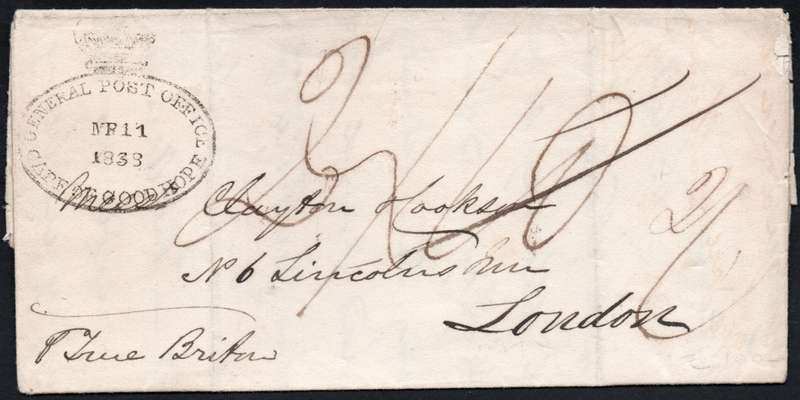 GENERAL POST OFFICE
MR 11
1838
CAPE OF GOOD HOPE
Mess Clayton Hookson
No 6 Lincolns Inn
London
P True Briton
2/